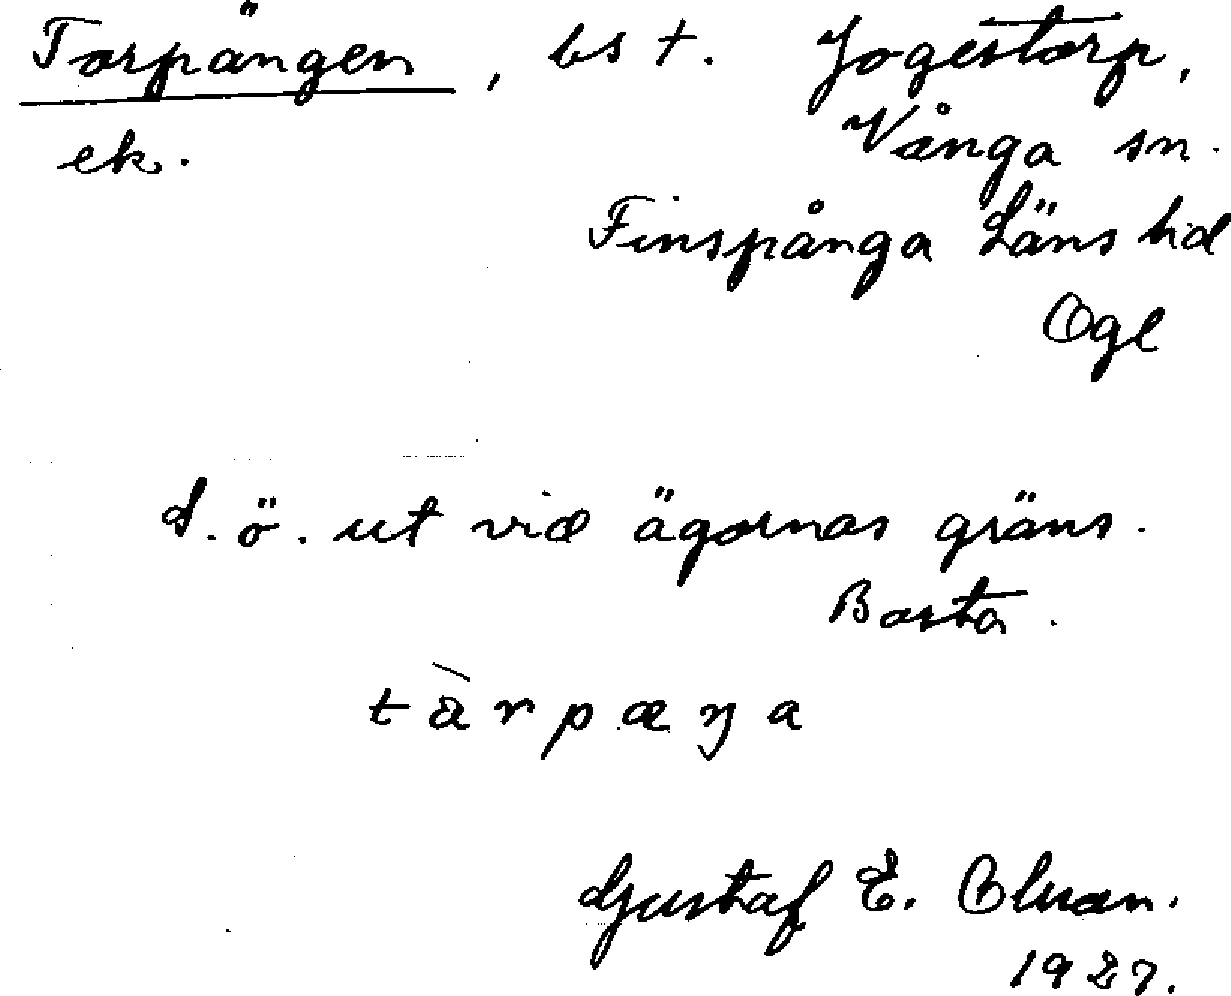 Torpängen, bs t. Jogestorp,
ek. Vånga sn.
Finspånga Läns hd
Ögl
d. ö. ut vid ägornas gräns.
Borta.
tàrpæŋa
Gustaf E. Olsson.
1927.